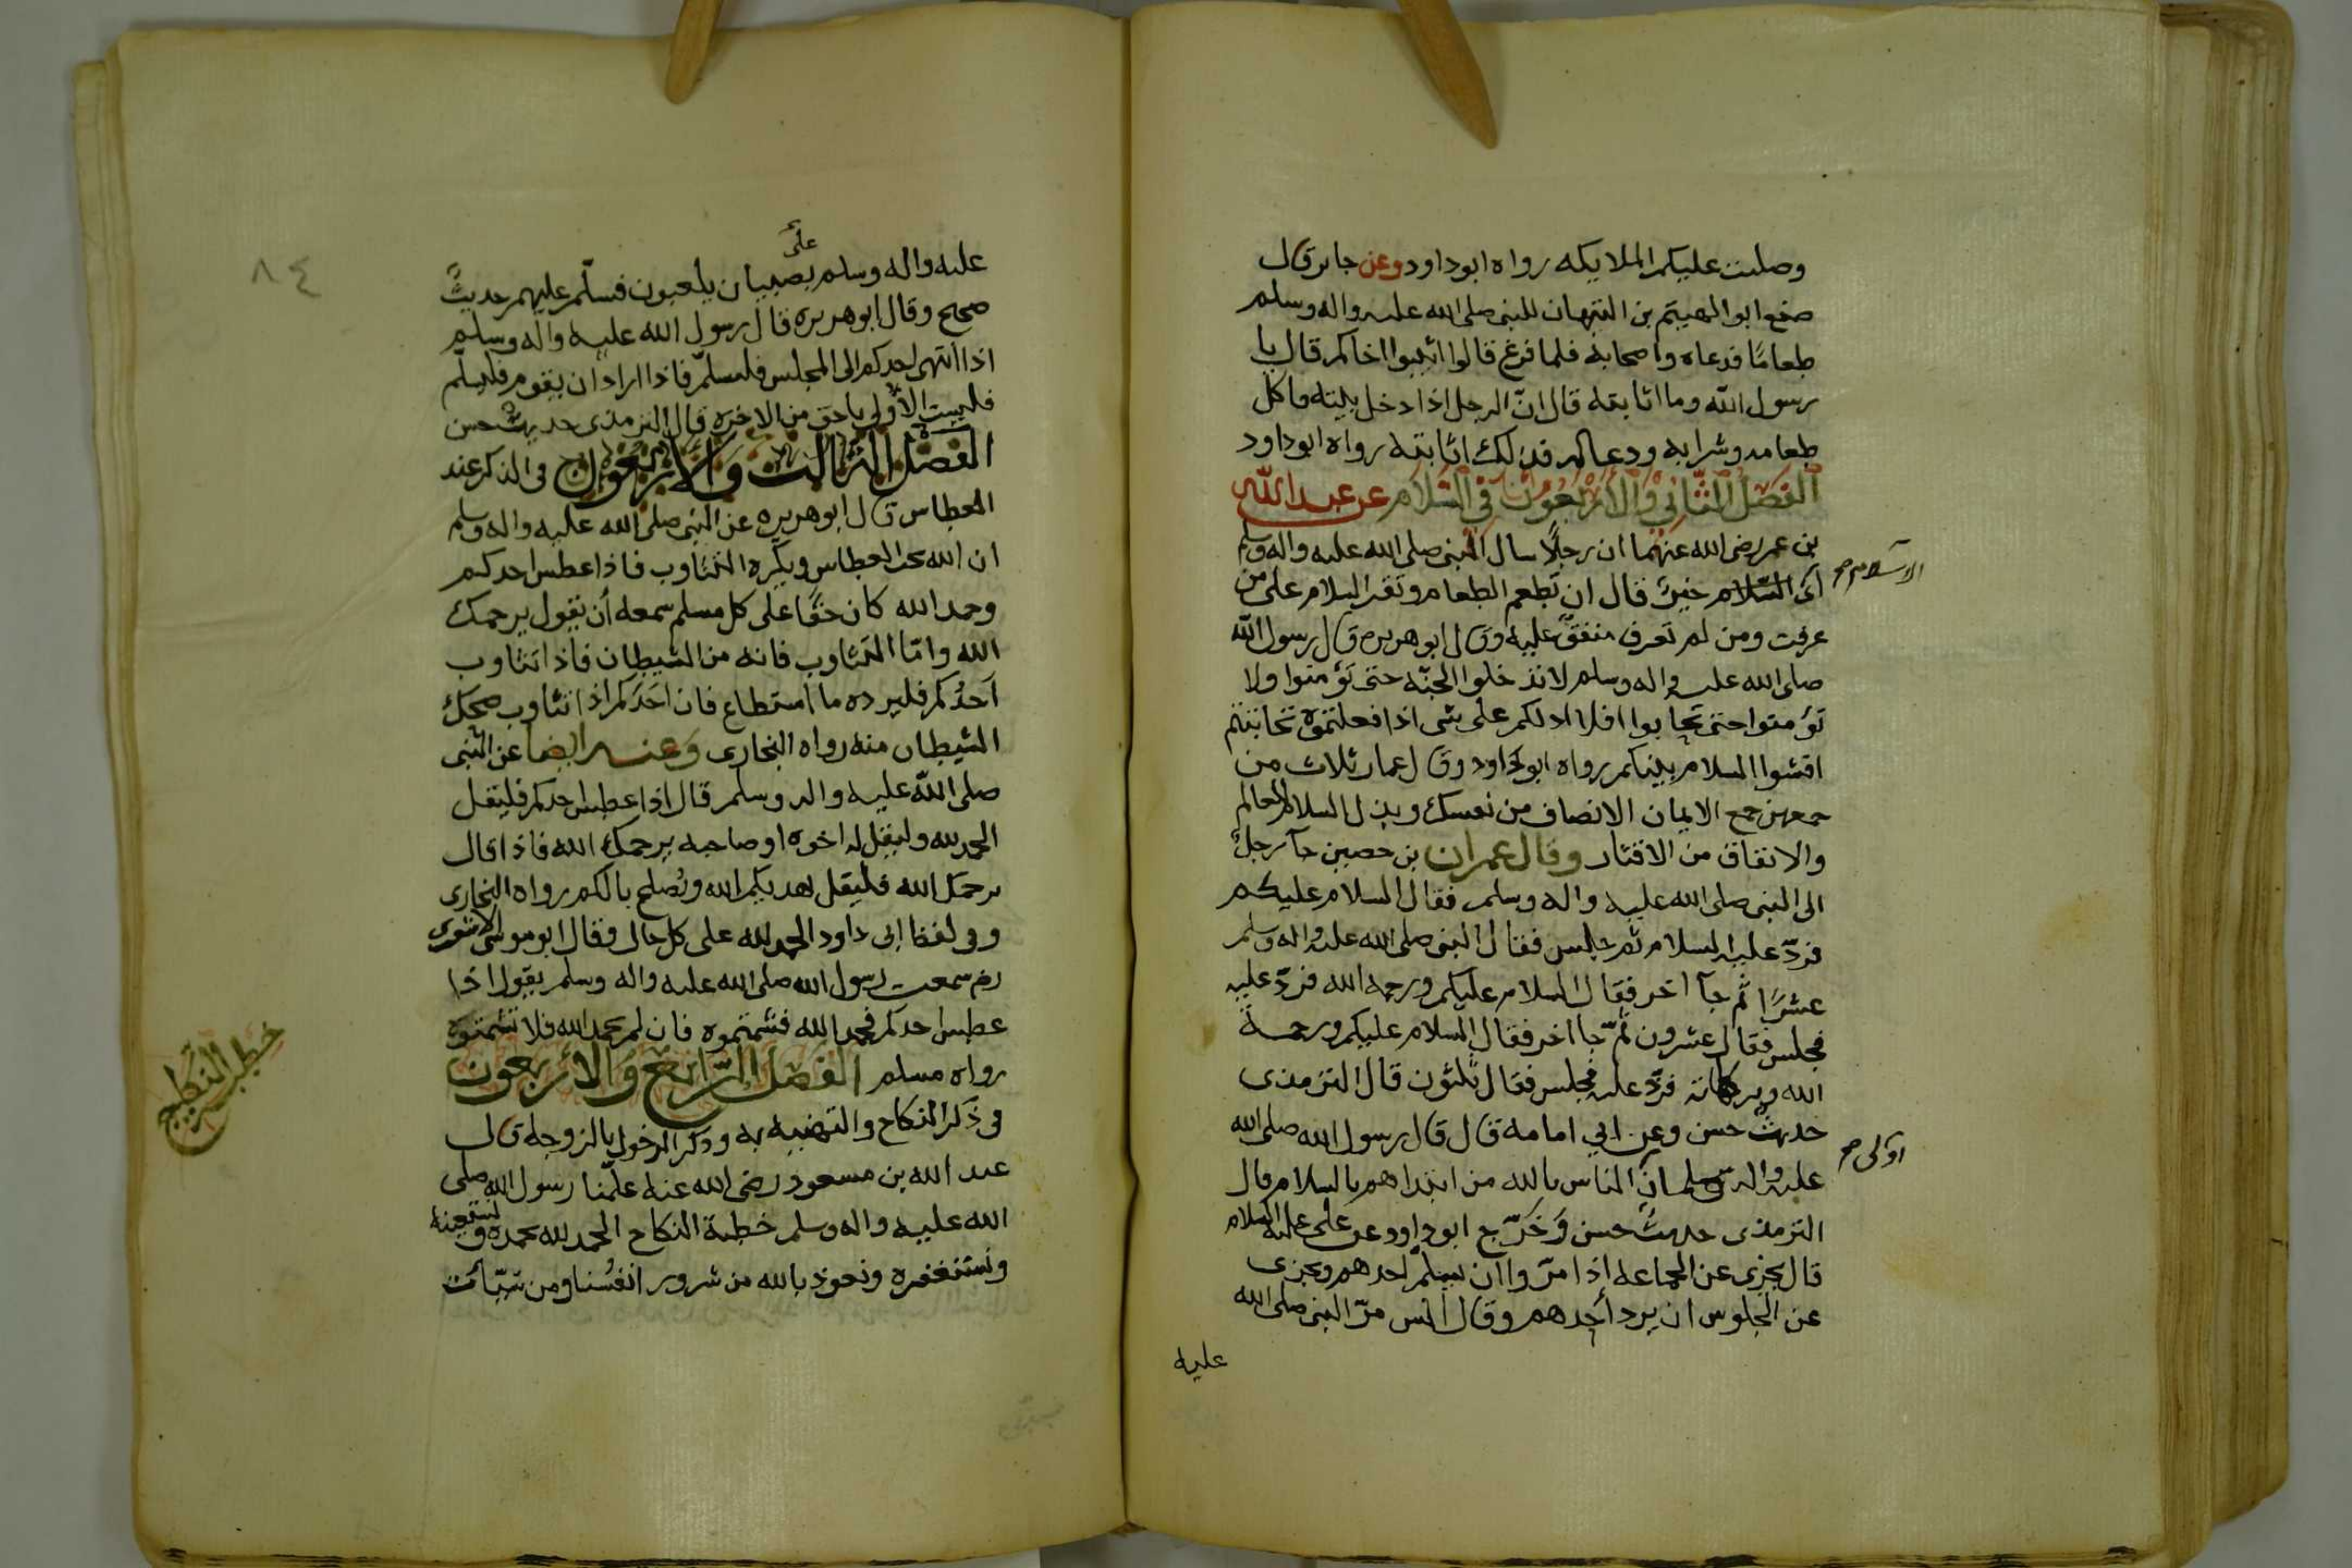 وصلت عليكم الملايكه رواه ابوداود وعن جابر قال
صنع ابوالهيثم بن التيهان للنبى صلى الله عليه واله وسلم
طعامًا فدعاه واصحابه فلما فرغ قالوا اثيبوا اخاكم قال يا
رسول الله وما اثابته قال انّ الرجل اذا دخل بيته واكل
طعامه وشرابه ودعا له فذلك اثابته رواه ابوداود
الفصل الثاني والأربعون في السلام عن عبد الله
بن عمر رضى الله عنهما ان رجلاً سال النبى صلى الله عليه واله وسلم
أى السّلام خيرٌ قال ان تطعم الطعام وتقر السلام على من
الاسلام صح
عرفت ومن لم تعرف متفق عليه وقال ابوهريره قال رسول الله
صلى الله عليه واله وسلم لا تدخلوا الجنّه حتى تؤمنوا ولا
تؤمنوا حتى تحابوا افلا ادلكم على شى اذا فعلتموه تحاببتم
افشوا السلام بينكم رواه ابوداود وقال عمار ثلاث من
جمعهن جمع الايمان الانصاف من نفسك وبذل السلام للعالم
والانفاق من الاقتار وقال عمران بن حصين جآ رجلٌ
الى النبى صلى الله عليه واله وسلم فقال السلام عليكم
فردّ عليه السلام ثم جلس فقال النبى صلى الله عليه واله وسلم
عشرًا ثم جآ اخر فقال السلام عليكم ورحمه الله فردّ عليه
فجلس فقال عشرون ثمّ جا اخر فقال السلام عليكم ورحمة
الله وبركاته فردّ عليه فجلس فقال ثلثون قال الترمذى
حديثٌ حسن وعن ابي امامه قال قال رسول الله صلى الله
عليه واله وسلم ان الناس بالله من ابتداهم بالسلام قال
اولى صح
الترمذى حديثٌ حسن وخرّج ابوداود عن على عليه السلام
قال يجزى عن الجماعه اذا مرّوا ان يسلّم احدهم ويجزى
عن الجلوس ان يرد أحدهم وقال انس مرّ النبى صلى الله
عليه
٨٤
على
عليه واله وسلم بصبيان يلعبون فسلّم عليهم حديثٌ
صحيح وقال ابوهريره قال رسول الله عليه واله وسلم
اذا انتهى احدكم الى المجلس فليسلّم فاذا اراد ان يقوم فليسلّم
فليست الأولى باحق من الاخره قال الترمذى حديثٌ حسن
الفصل الثالث والأربعون فى الذكر عند
العطاس قال ابوهريره عن النبى صلى الله عليه واله وسلم
ان الله يحب العطاس ويكره التثاوب فاذا عطس احدكم
وحمد الله كان حقًا على كل مسلم سمعه أن يقول يرحمك
الله وامّا التثاوب فانه من الشيطان فاذا تثاوب
أحدُكم فليرده ما استطاع فان احَدَكم اذا تثاوب ضحك
الشيطان منه رواه البخارى وعنه ايضا عن النبى
صلى الله عليه واله وسلم قال اذا عطس احدكم فليقل
الحمد لله وليقل له اخوه او صاحبه يرحمك الله فاذا قال
يرحمك الله فليقل يهديكم الله ويُصلح بالكم رواه البخارى
وفى لفظ ابى داود الحمد لله على كل حال وقال ابوموسى الاشعرى
رض سمعت رسول الله صلى الله عليه واله وسلم يقول اذا
عطس احدكم فحمد الله فشمتموه فان لم يحمد الله فلا تشمتوه
رواه مسلم الفصل الرّابع والأربعون
فى ذكر النكاح والتهنيه به وذكر الدخول بالزوجه قال
عبد الله بن مسعود رضى الله عنه علّمنا رسول الله صلى
الله عليه واله وسلم خطبة النكاح الحمد لله نحمده ونستعينه
ونستغفره ونعوذ بالله من شرور انفسُنا ومن سيّأت